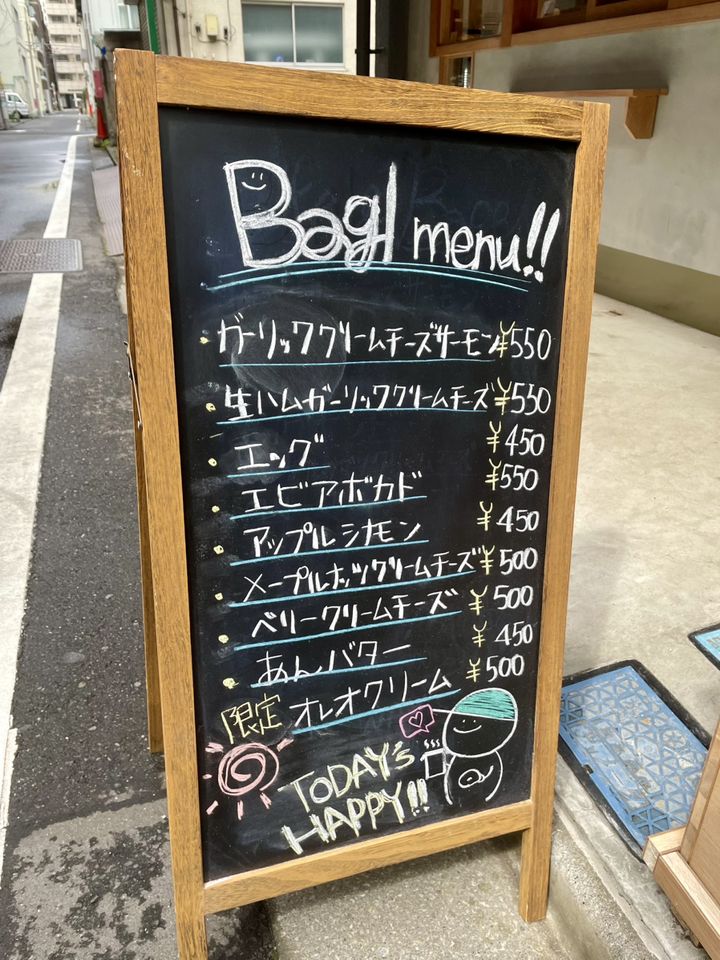 Bagl menu!!
ガーリッククリームチーズサーモン ¥550
生ハムガーリッククリームチーズ ¥550
エッグ ¥450
エビアボカド ¥550
アップルシナモン ¥450
メープルナッツクリームチーズ ¥500
ベリークリームチーズ ¥500
あんバター ¥450
限定 オレオクリーム ¥500
TODAY's
HAPPY!!